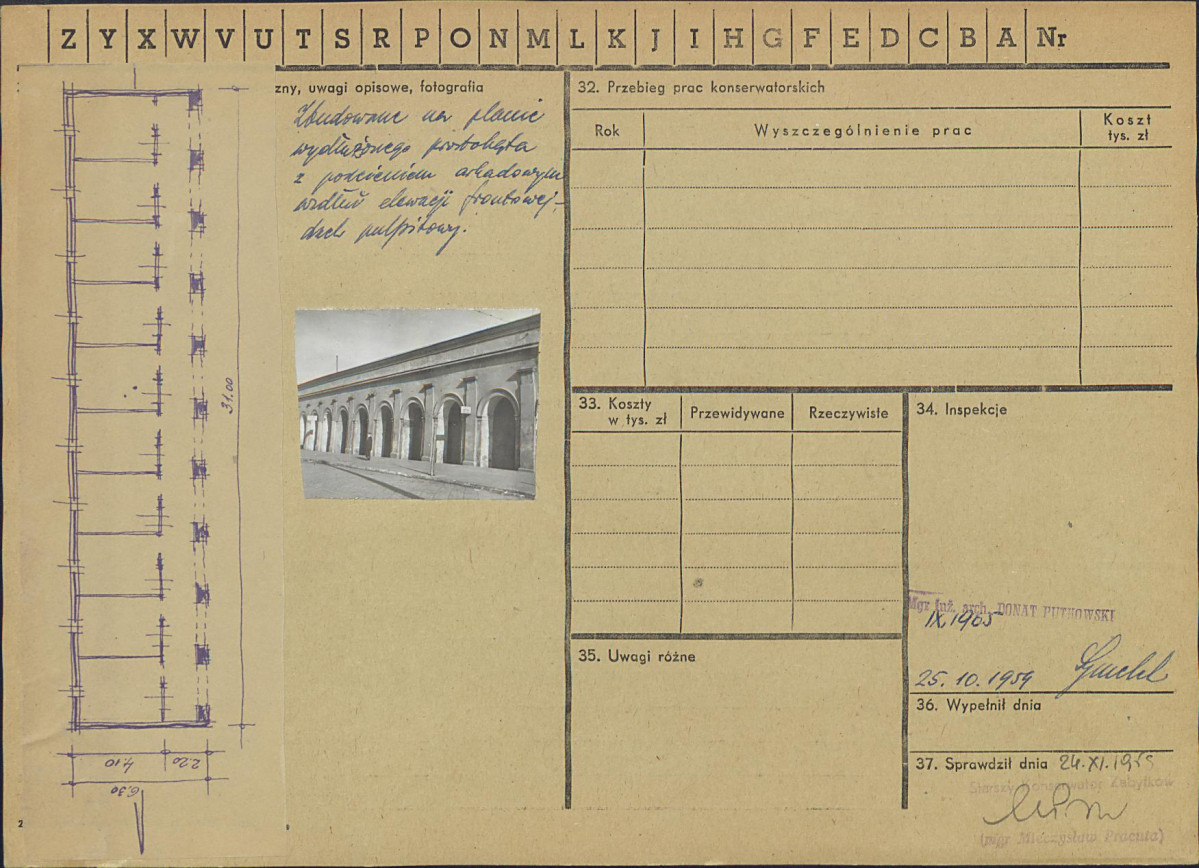 Z Y X W V U T S R P O N M L K J I H G F E D C B A Nr
zny, uwagi opisowe, fotografia
Zbudowane na planie
wydłużonego prostokąta
z podcieniem arkadowym
wzdłuż elewacji frontowej -
dach pulpitowy.
31.00
4.10 2.20
6.30
2
32. Przebieg prac konserwatorskich
Rok Wyszczególnienie prac Koszt tys. zł
33. Koszty w tys. zł Przewidywane Rzeczywiste
34. Inspekcje
Mgr inż. arch. DONAT PUTKOWSKI
IX.1965
25. 10. 1959
35. Uwagi różne
36. Wypełnił dnia
37. Sprawdził dnia 24.XI.1959
Starszy Konserwator Zabytków
(mgr Mieczysław Pracuta)